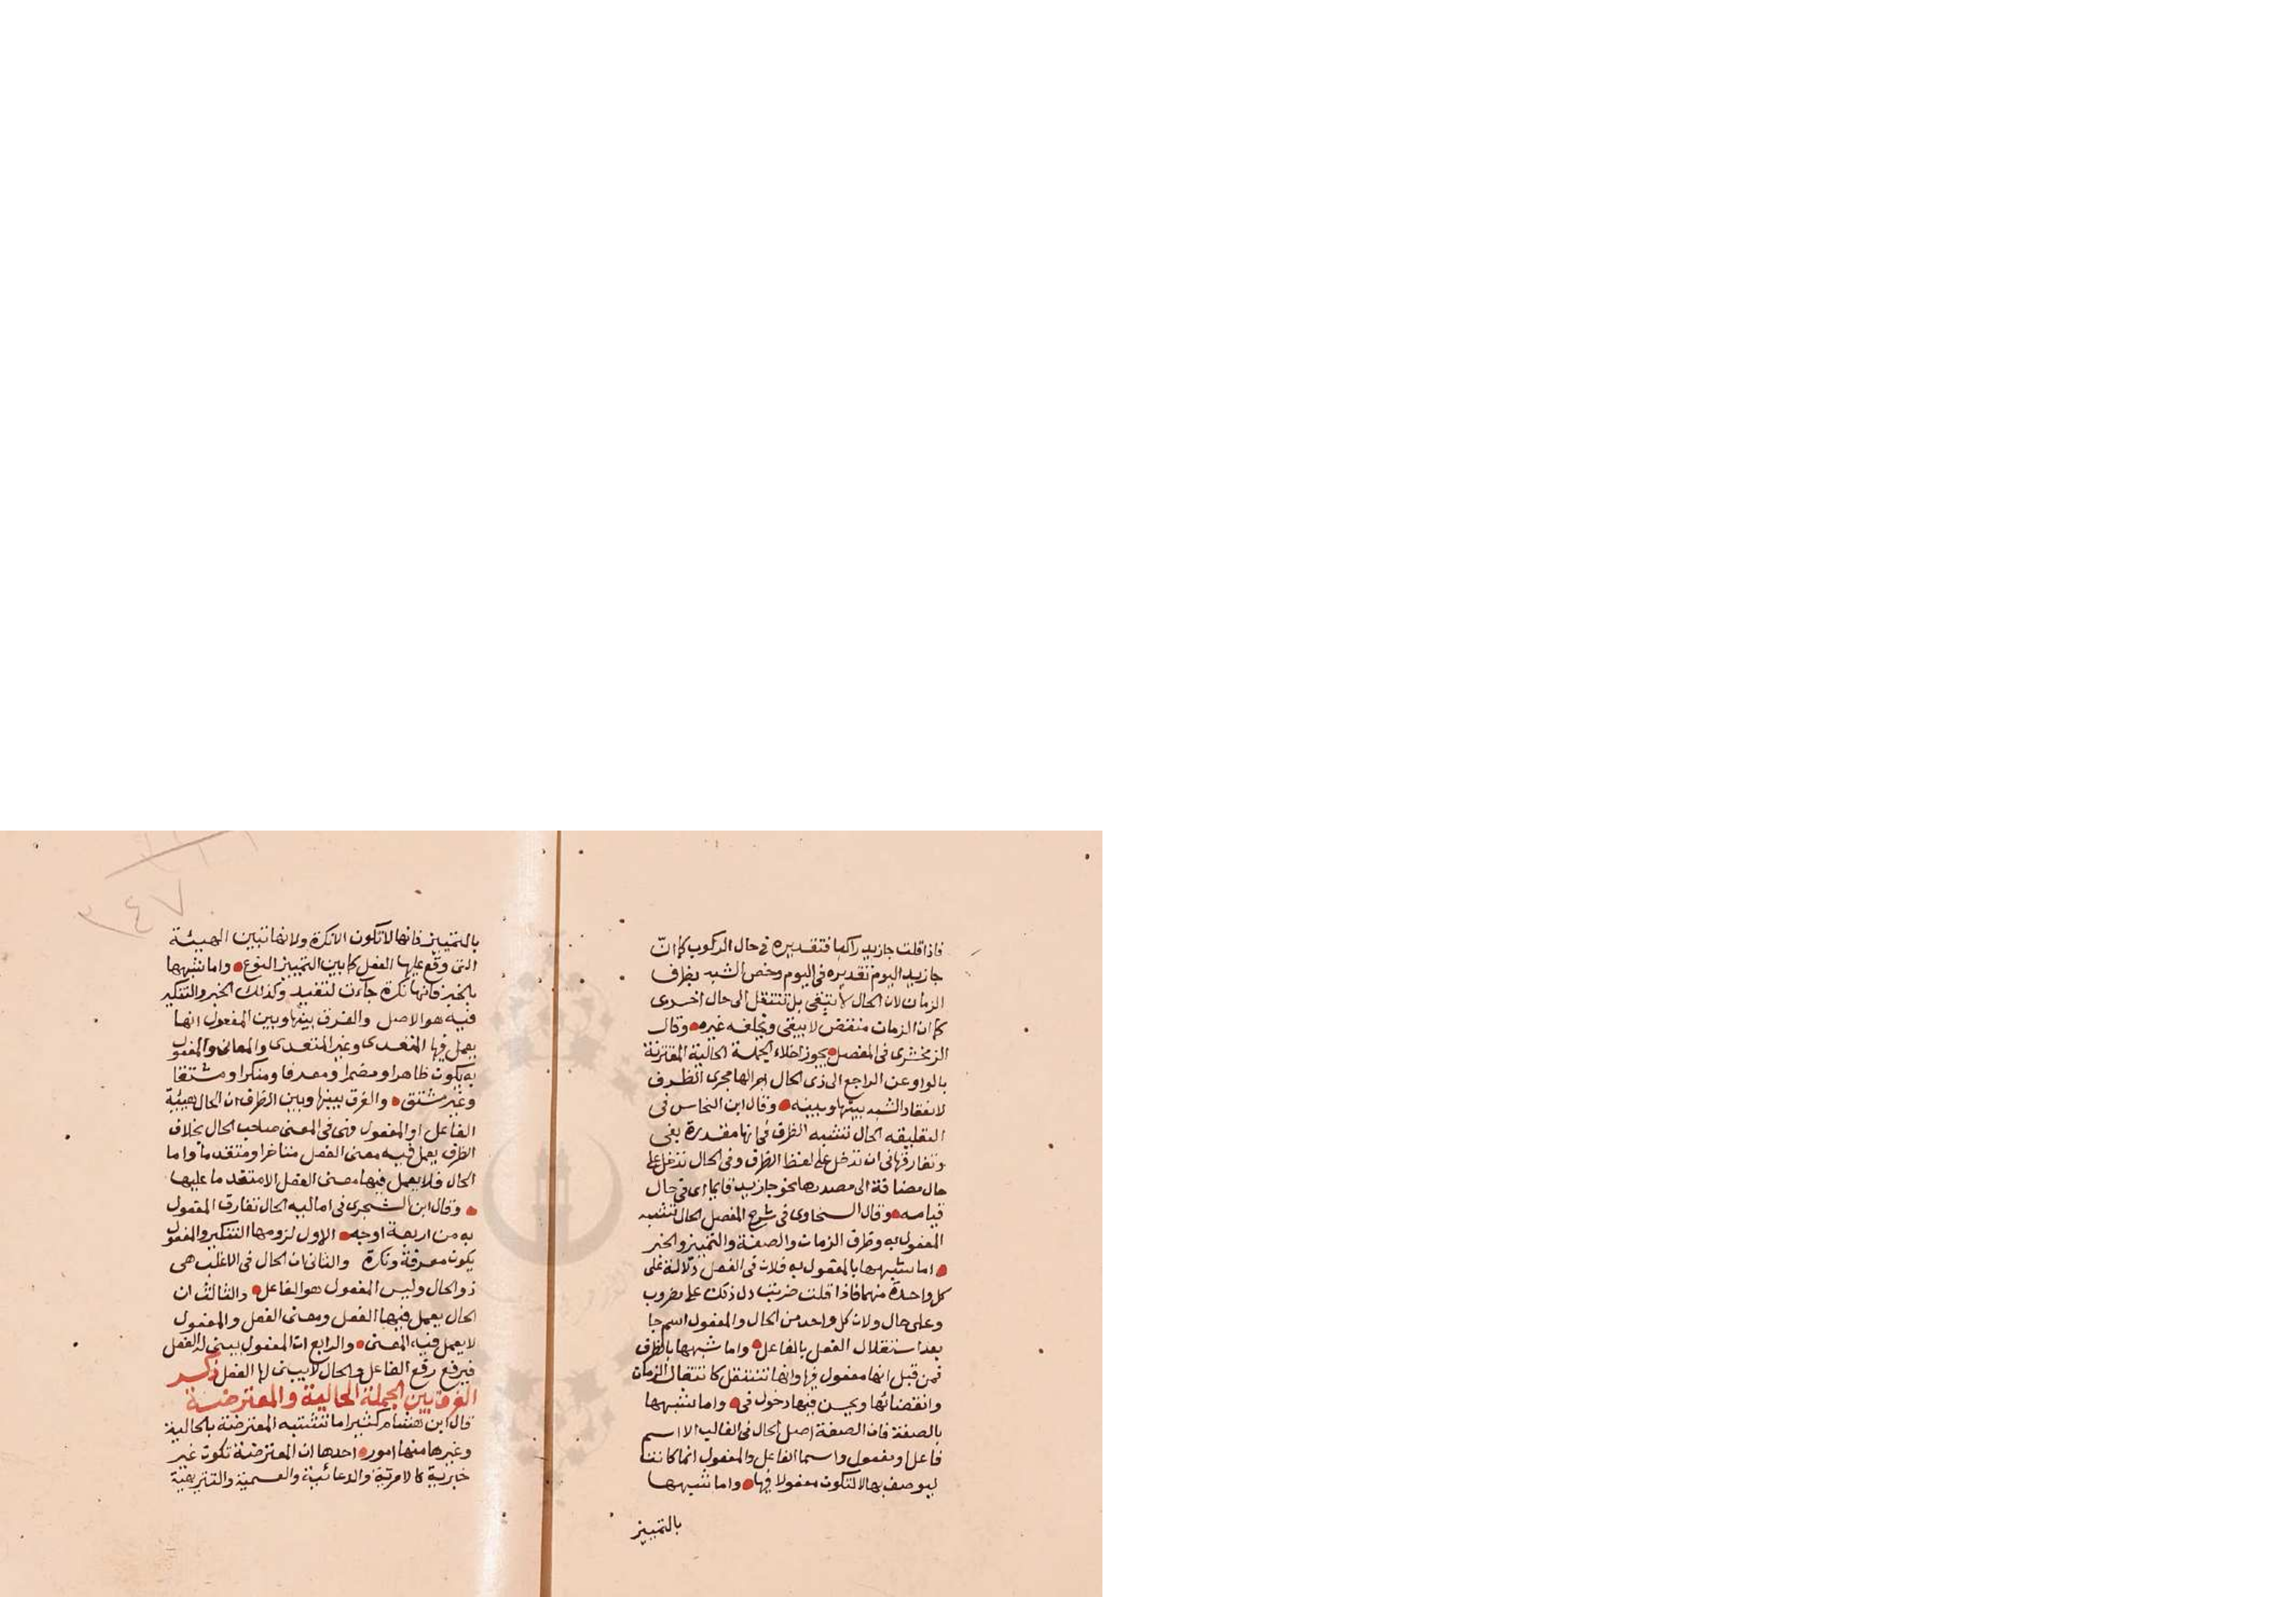 فاذا قلت جا زيد راكبا فتقديره في حال الركوب كما انّ
جا زيد اليوم تقديره في اليوم وخص الشبه بظرف
الزمان لان الحال لا تبقى بل تنتقل الى حال اخرى
كما ان الزمان منقض لا يبقى ويخلفه غيره وقال
الزمخشرى فى المفصل يجوز اخلاء الجملة الحالية المقترنة
بالواو عن الراجع الى ذى الحال اجرالها مجرى الظرف
لانعقاد الشبه بينها وبينه وقال ابن النحاس فى
التعليقه الحال تشبه الظرف فى انها مقدرة بفى
وتفارقها فى ان تدخل على لفظ الظرف وفى الحال تدخل على
حال مضافة الى مصدرها نحو جا زيد قايما اى فى حال
قيامه وقال السخاوى فى شرح المفصل الحال تشبه
المفعول به وظرف الزمان والصفة والتمييز والخبر
اما شبهها بالمفعول به فلان فى الفعل دلالة على
كل واحدة منهما فاذا قلت ضربت دل ذلك على مضروب
وعلى حال ولان كل واحد من الحال والمفعول اسم جا
بعد استقلال الفعل بالفاعل واما شبهها بالظرف
فمن قبل انها مفعول فيها وانها تنتقل كانتقال الزمان
وانقضائها ويحسن فيها دخول فى واما شبهها
بالصفة فان الصفة اصل الحال فى الغالب الا اسم
فاعل او مفعول واسما الفاعل والمفعول انما كانت
ليوصف بها لا لتكون مفعولا فيها واما شبهها
بالتمييز
بالتمييز فانها لا تكون الا نكرة ولانها تبين الهيئة
التى وقع عليها الفعل كما بين التمييز النوع واما شبهها
بالخبر فانها نكرة جاءت لتفيد وكذلك الخبر والتنكير
فيه هو الاصل والفرق بينها وبين المفعول انها
يعمل فيها المتعدى وغير المتعدى والمعانى والمفعول
به يكون ظاهرا ومضمرا ومعرفا ومنكرا ومشتقا
وغير مشتق والفرق بينها وبين الظرف ان الحال هيئة
الفاعل او المفعول وهى فى المعنى صاحب الحال بخلاف
الظرف يعمل فيه معنى الفعل متاخرا ومتقدما واما
الحال فلا يعمل فيها معنى الفعل الا متقدما عليها
وقال ابن الشجرى فى اماليه الحال تفارق المفعول
به من اربعة اوجه الاول لزومها التنكير والمفعول
يكون معرفة ونكرة والثانى ان الحال فى الاغلب هى
ذو الحال وليس المفعول هو الفاعل والثالث ان
الحال يعمل فيها الفعل ومعنى الفعل والمفعول
لا يعمل فيه المعنى والرابع ان المفعول يبنى له الفعل
فيرفع رفع الفاعل والحال لا يبنى لها الفعل ذكر
الفرق بين الجملة الحالية والمعترضة
قال ابن هشام كثيرا ما تشتبه المعترضة بالحالية
وغيرها منها امور احدها ان المعترضة تكون غير
خبرية كالامرية والدعائية والقسمية والتنزيهية